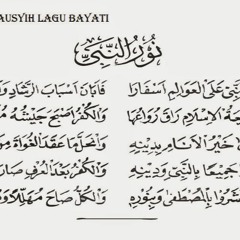 AUSYIH LAGU BAYATI
نُورُ النَّبِيّ
نَبِيِّ عَلَى الْعَوَالِمِ اَسْفَارَا فَاَبَانَ اَسْبَابَ الرَّشَادِ
الْاِسْلَامِ رَاقَ رُوَاؤُهَا وَالْكُفْرُ اَصْبَحَ جَيْشُهُ
خَيْرُ الْاَنَامِ بِدِيْنِهِ وَانْحَلَّ مَا عَقَدَ الْغُوَاةُ
جَمِيْعًا بِالنَّبِيِّ وَدِيْنِهِ وَالْكُفْرُ بَعْدَ الْعُرْفِ صَارَ
بِالْمُصْطَفَى وَبِنُوْرِهِ وَالْكُلُّ صَاحَ مُهَلِّلًا